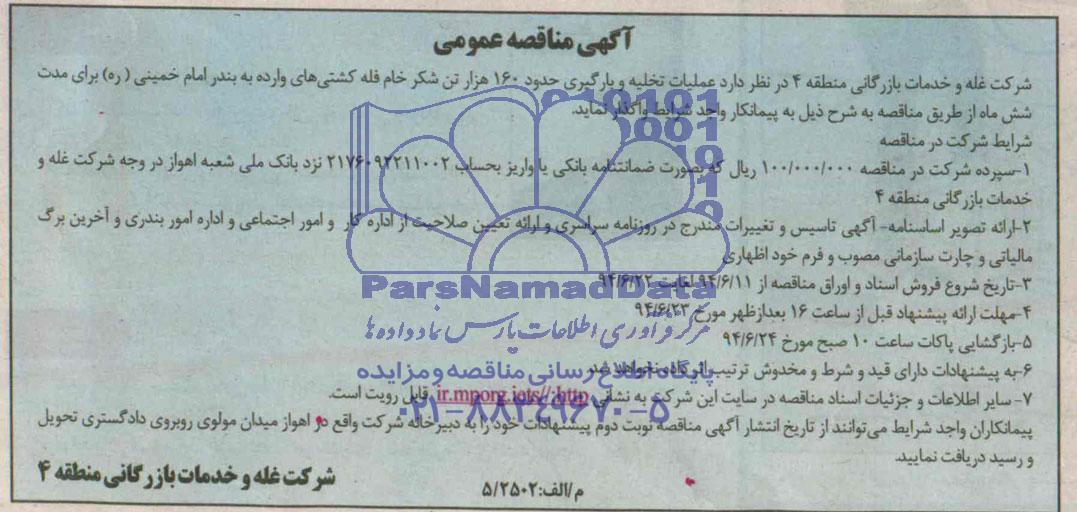 آگهی مناقصه عمومی
شرکت غله و خدمات بازرگانی منطقه ۴ در نظر دارد عملیات تخلیه و بارگیری حدود ۱۶۰ هزار تن شکر خام فله کشتی‌های وارده به بندر امام خمینی (ره) برای مدت
شش ماه از طریق مناقصه به شرح ذیل به پیمانکار واجد شرایط واگذار نماید.
شرایط شرکت در مناقصه
۱-سپرده شرکت در مناقصه ۱۰۰/۰۰۰/۰۰۰ ریال که بصورت ضمانتنامه بانکی یا واریز بحساب ۲۱۷۶۰۹۲۲۱۱۰۰۲ نزد بانک ملی شعبه اهواز در وجه شرکت غله و
خدمات بازرگانی منطقه ۴
۲-ارائه تصویر اساسنامه- آگهی تاسیس و تغییرات مندرج در روزنامه سراسری و ارائه تعیین صلاحیت از اداره کار و امور اجتماعی و اداره امور بندری و آخرین برگ
مالیاتی و چارت سازمانی مصوب و فرم خود اظهاری
۳-تاریخ شروع فروش اسناد و اوراق مناقصه از ۹۴/۶/۱۱ لغایت ۹۴/۶/۲۲
۴-مهلت ارائه پیشنهاد قبل از ساعت ۱۶ بعدازظهر مورخ ۹۴/۶/۲۳
۵-بازگشایی پاکات ساعت ۱۰ صبح مورخ ۹۴/۶/۲۴
۶-به پیشنهادات دارای قید و شرط و مخدوش ترتیب اثر داده نخواهد شد.
۷- سایر اطلاعات و جزئیات اسناد مناقصه در سایت این شرکت به نشانی ir.mporg.iets//:http قابل رویت است.
پیمانکاران واجد شرایط می‌توانند از تاریخ انتشار آگهی مناقصه نوبت دوم پیشنهادات خود را به دبیرخانه شرکت واقع در اهواز میدان مولوی روبروی دادگستری تحویل
و رسید دریافت نمایید.
شرکت غله و خدمات بازرگانی منطقه ۴
م/الف:۵/۲۵۰۲
ParsNamadData
مرکز فرآوری اطلاعات پارس نماد داده ها
پایگاه اطلاع رسانی مناقصه و مزایده
۰۲۱-۸۸۳۴۹۶۷۰-۵